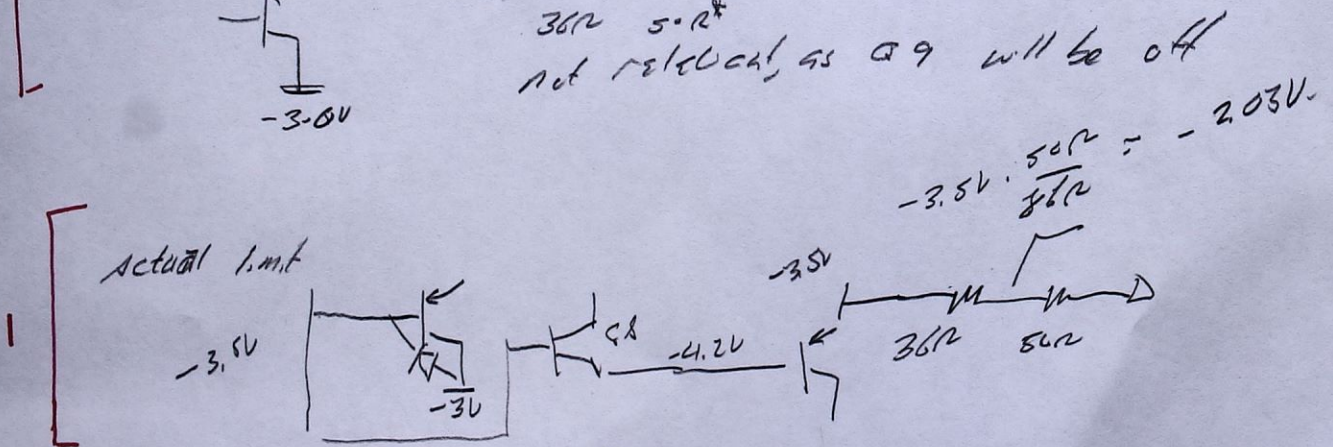 36R 50R*
not relevant, as Q9 will be off
-3.0V
-3.5V · 50R / 86R = - 2.03V.
Actual limit
-3.5V
-3.5V
Q8
-4.2V
36R 50R
-3V